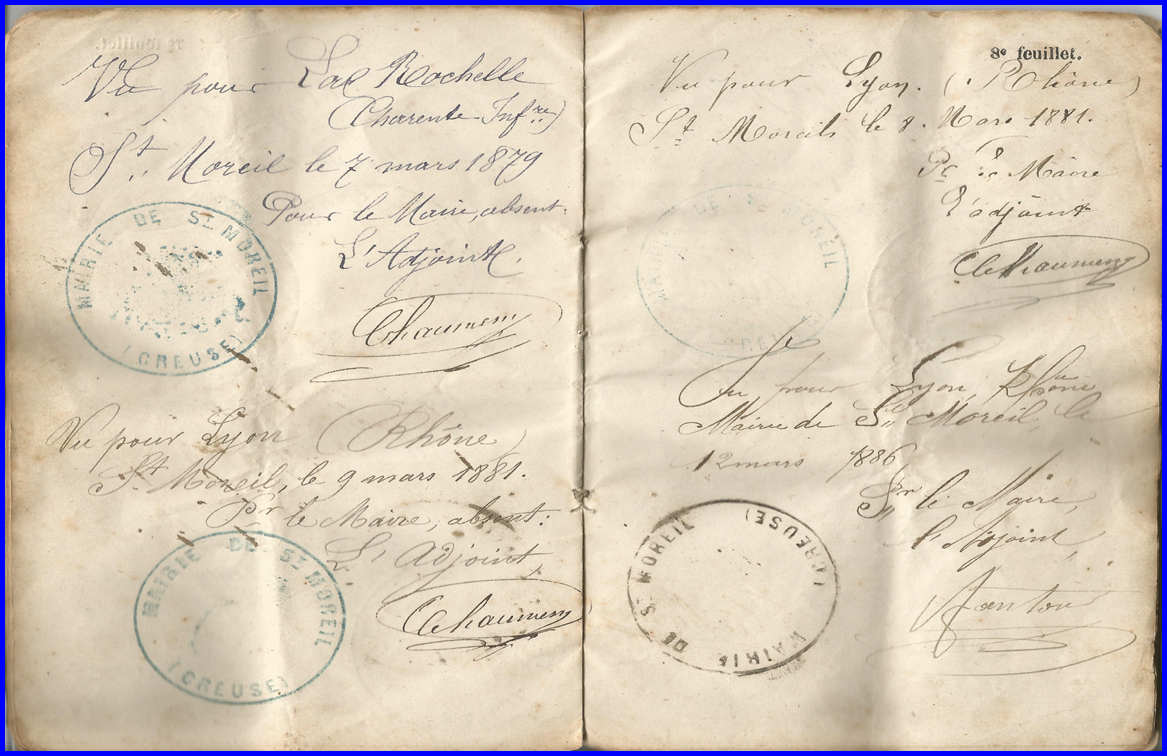 Vu pour La Rochelle
(Charente-Infre)
St. Moreil le 7 mars 1879
Pour le Maire, absent.
L'Adjoint.
MAIRIE DE ST MOREIL
(CREUSE)
Vu pour Lyon (Rhône)
St Moreil, le 9 mars 1881.
Pr le Maire, absent:
L'Adjoint,
MAIRIE DE ST MOREIL
(CREUSE)
8e feuillet.
Vu pour Lyon. (Rhône)
St Moreil le 8. Mars 1881.
Pr le Maire
L'adjoint
MAIRIE DE ST MOREIL
(CREUSE)
Vu pour Lyon, Rhône
Mairie de St Moreil, le
12 mars 1886
Pr le Maire,
l'Adjoint,
MAIRIE DE ST MOREIL
(CREUSE)